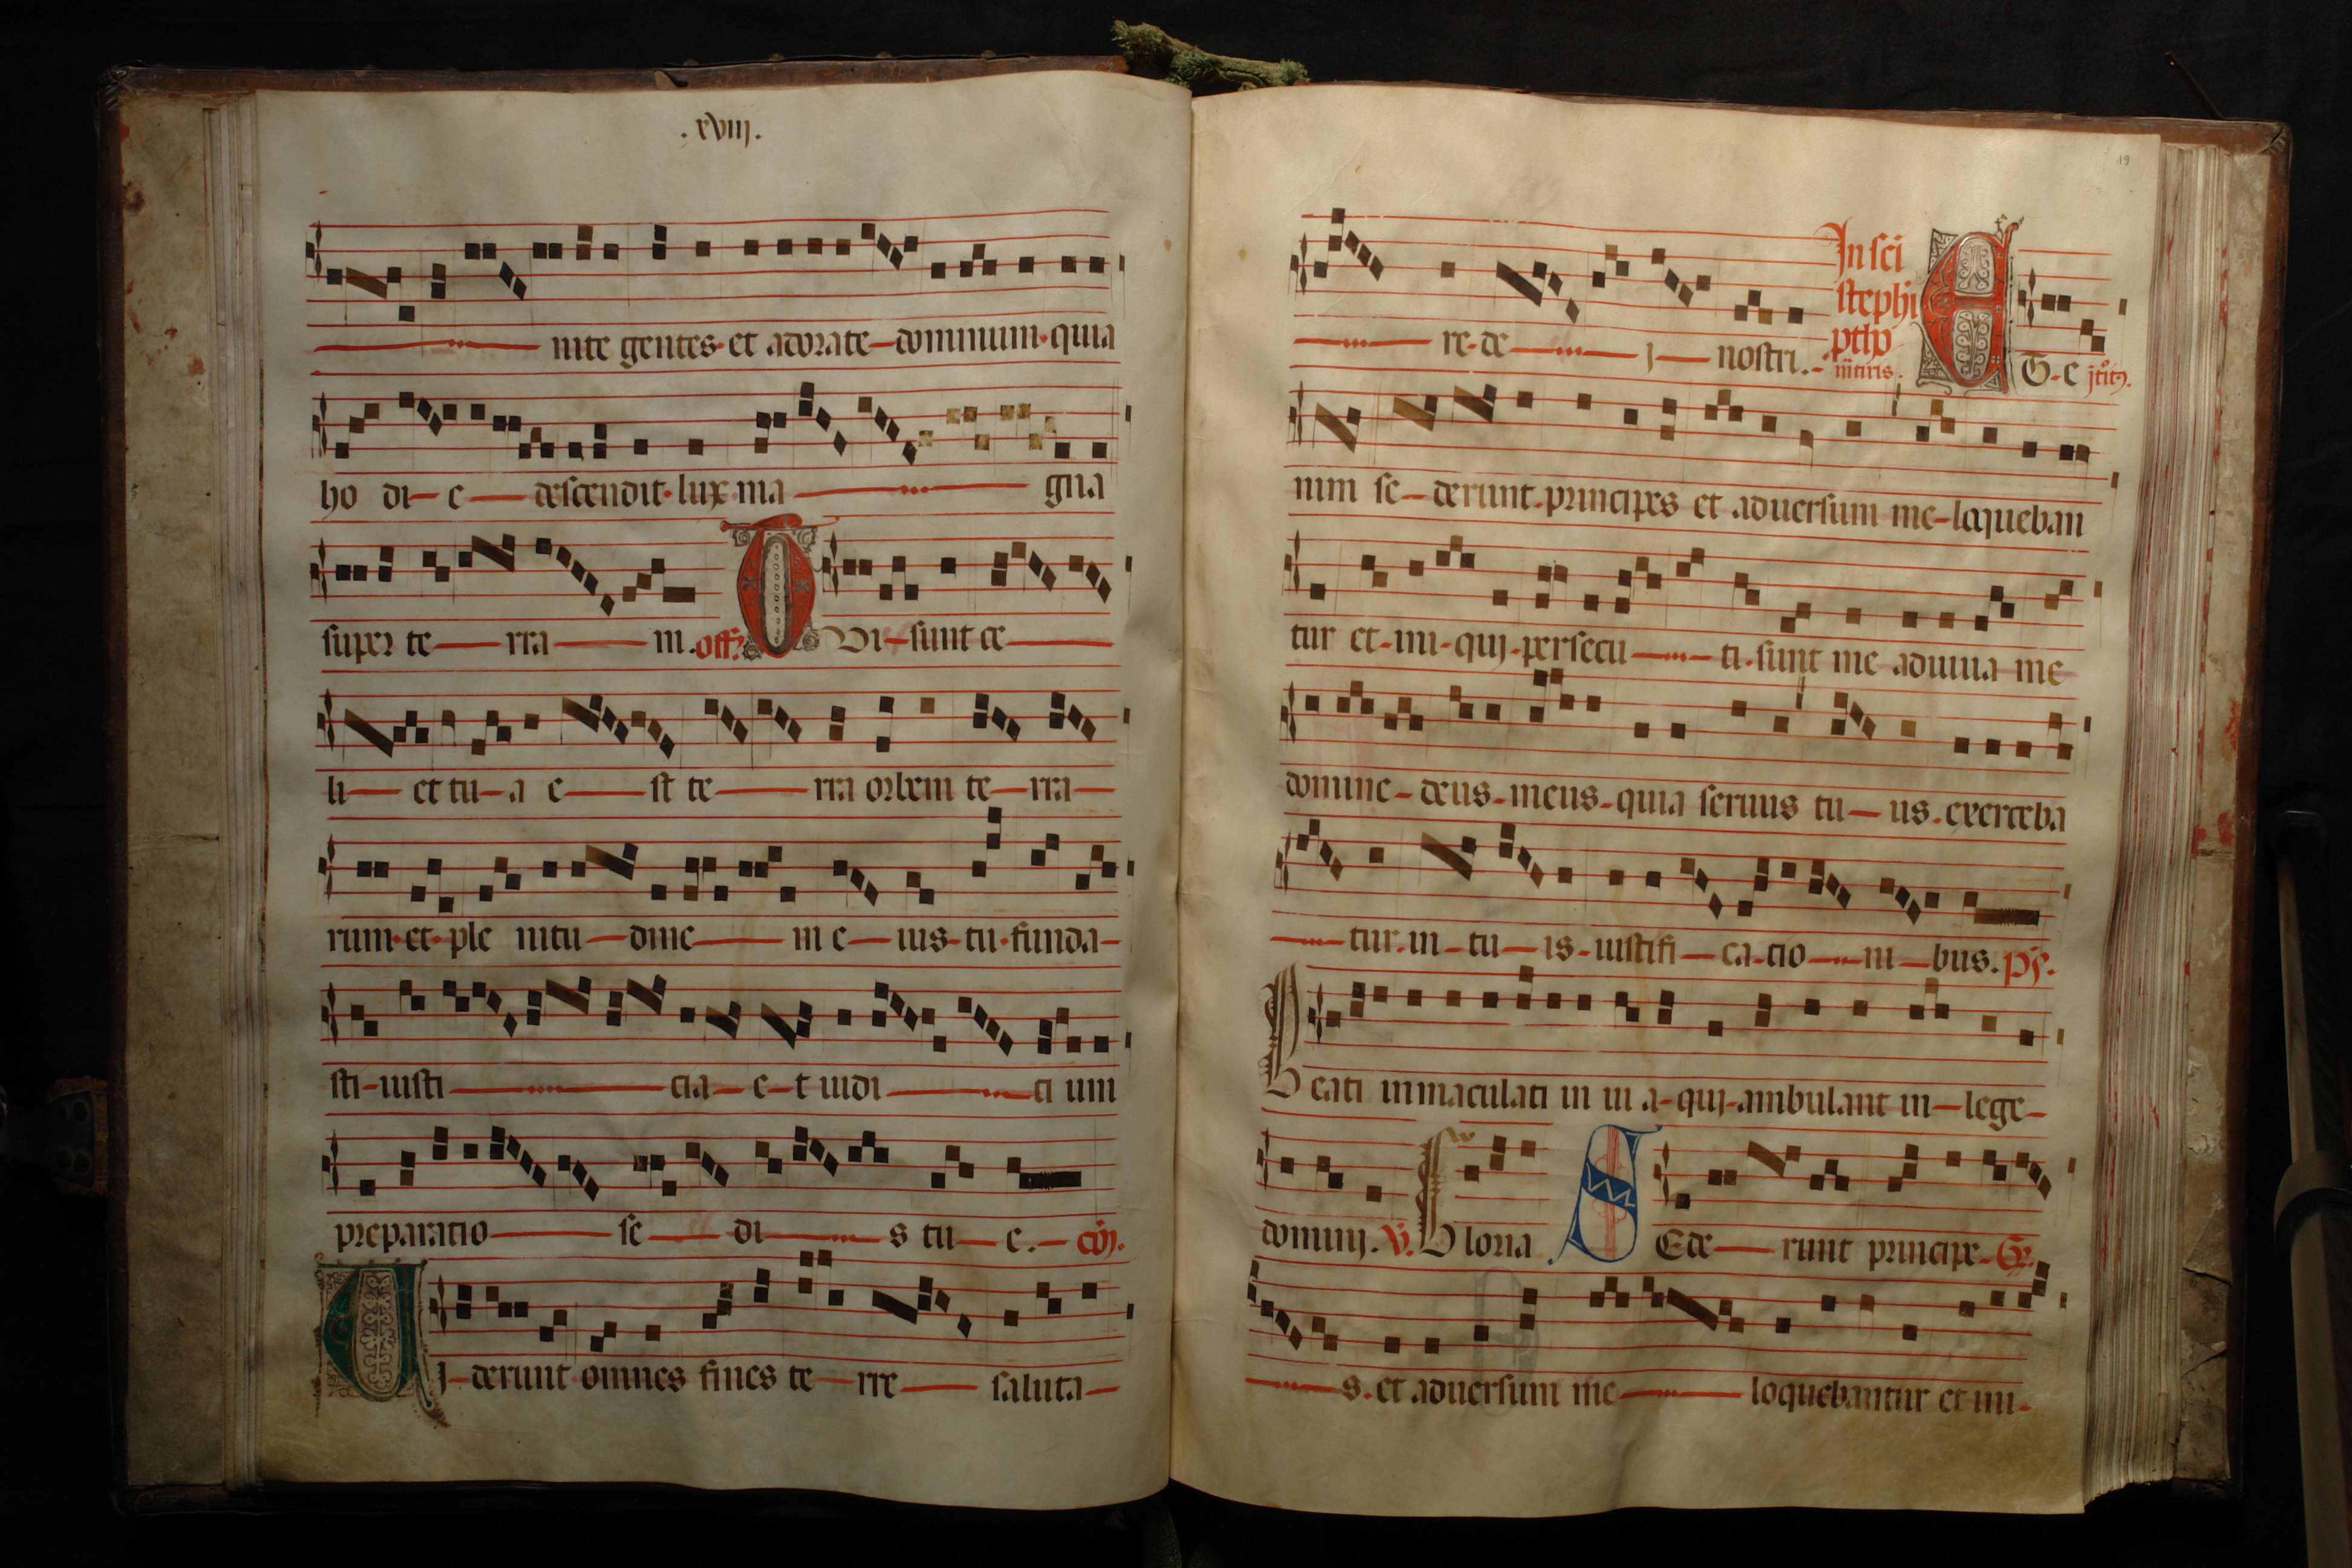 .xviij.
nite gentes et adorate dominum quia
ho di e descendit lux ma gna
super te rra m. off.
O Vi sunt ce
li et tu a e st te rra orbem te rra
rum et ple nitu dine m e ius tu funda
sti iusti cia e t iudi ci um
preparatio se di s tu e. cōj.
V I derunt omnes fines te rre saluta
19
re de j nostri.
In sci
stephi
pthp
E T e
nim se derunt principes et aduersum me loqueban
tur et ini quj persecu ti sunt me adiuua me
domine deus meus quia seruus tu us. exerceba
tur in tu is iustifi ca tio ni bus. ps.
B eati inmaculati in ui a quj ambulant in lege
dominj. V. G loria S Ede runt principe Gr.
s. et aduersum me loquebantur et ini